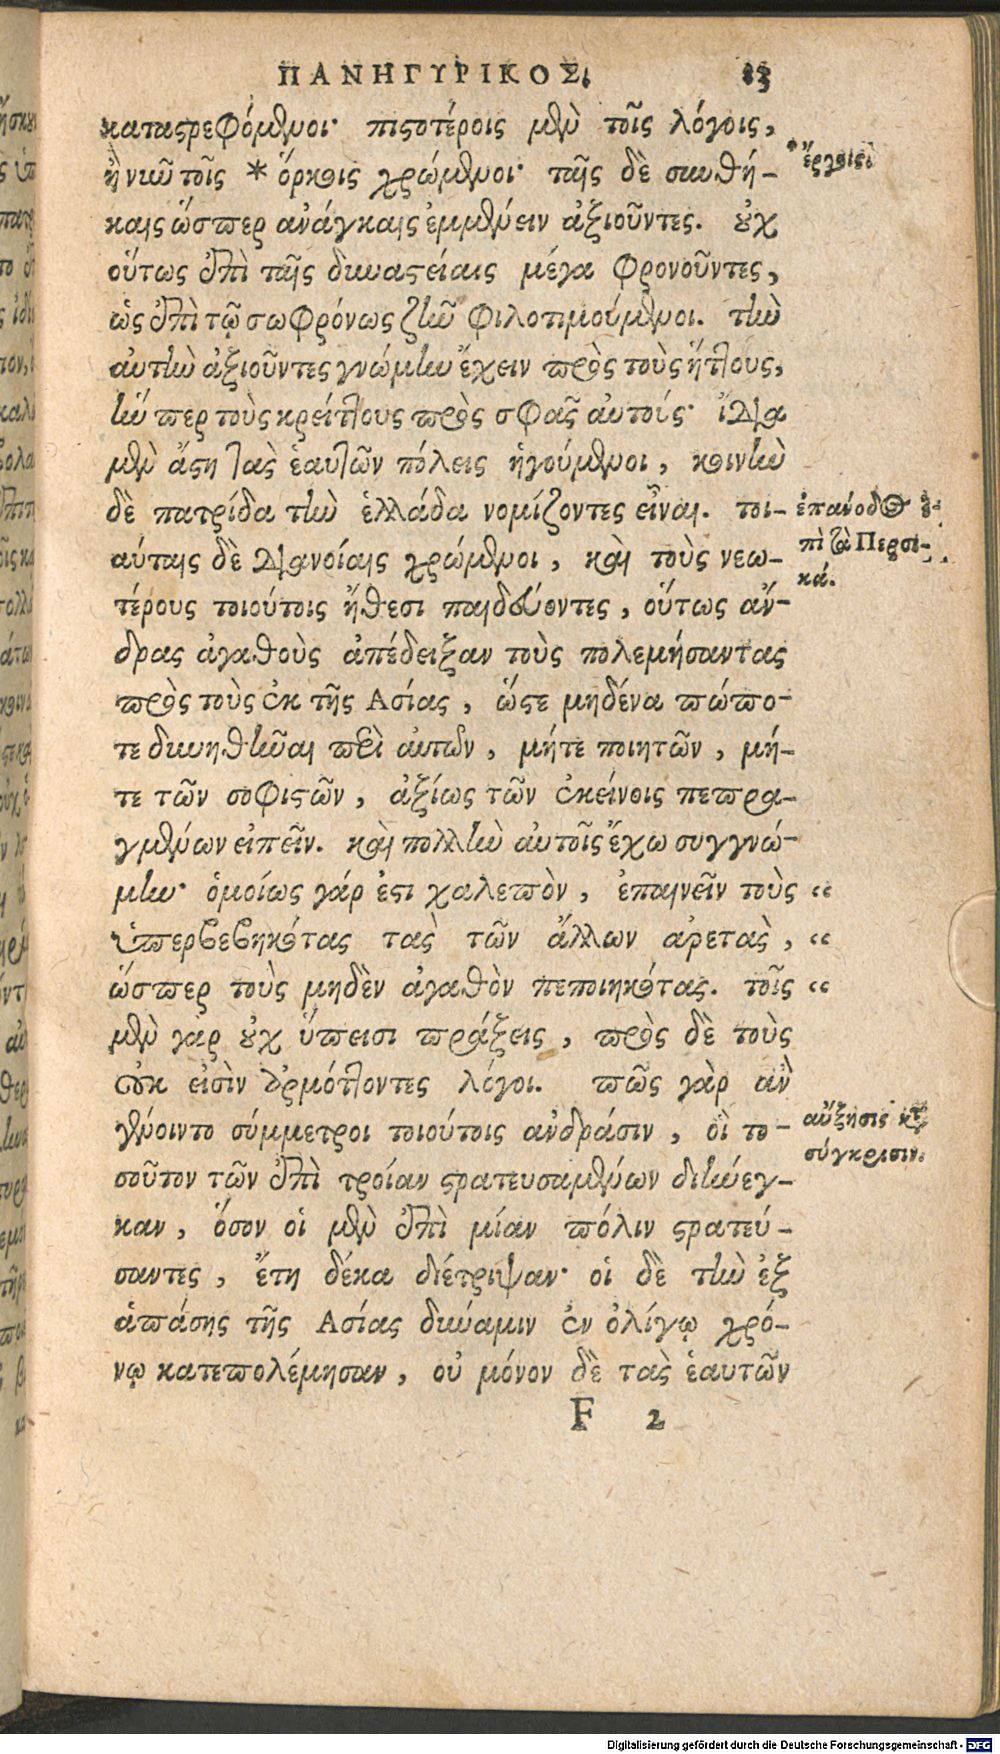 ΠΑΝΗΓΥΡΙΚΟΣ. 83
καταστρεφόμενοι· πιστοτέροις μὲν τοῖς λόγοις,
ἢ νιῦ τοῖς * ὅρκοις χρώμενοι· ταῖς δὲ συνθή-
καις ὥσπερ ἀνάγκαις ἐμμένειν ἀξιοῦντες. οὐχ
οὕτως ἐπὶ ταῖς δυναστείαις μέγα φρονοῦντες,
ὡς ἐπὶ τῷ σωφρόνως ζῆν φιλοτιμούμενοι. τὴν
αὐτὴν ἀξιοῦντες γνώμην ἔχειν πρὸς τοὺς ἥττους,
ἥν περ τοὺς κρείττους πρὸς σφᾶς αὐτούς· ἴδια
μὲν ἄστη τὰς ἑαυτῶν πόλεις ἡγούμενοι, κοινὴν
δὲ πατρίδα τὴν ἑλλάδα νομίζοντες εἶναι. τοι-
αύταις δὲ διανοίαις χρώμενοι, καὶ τοὺς νεω-
τέρους τοιούτοις ἤθεσι παιδεύοντες, οὕτως ἄν-
δρας ἀγαθοὺς ἀπέδειξαν τοὺς πολεμήσαντας
πρὸς τοὺς ἐκ τῆς Ασίας, ὥστε μηδένα πώπο-
τε δυνηθῆναι περὶ αὐτῶν, μήτε ποιητῶν, μή-
τε τῶν σοφιστῶν, ἀξίως τῶν ἐκείνοις πεπρα-
γμένων εἰπεῖν. καὶ πολλὴν αὐτοῖς ἔχω συγγνώ-
μην· ὁμοίως γάρ ἐστι χαλεπὸν, ἐπαινεῖν τοὺς “
ὑπερβεβηκότας τὰς τῶν ἄλλων ἀρετὰς, “
ὥσπερ τοὺς μηδὲν ἀγαθὸν πεποιηκότας. τοῖς “
μὲν γὰρ οὐχ ὕπεισι πράξεις, πρὸς δὲ τοὺς
οὐκ εἰσὶν ἁρμόττοντες λόγοι. πῶς γὰρ ἂν
γένοιντο σύμμετροι τοιούτοις ἀνδράσιν, οἳ το-
σοῦτον τῶν ἐπὶ τροίαν στρατευσαμένων διήνεγ-
καν, ὅσον οἱ μὲν ἐπὶ μίαν πόλιν στρατεύ-
σαντες, ἔτη δέκα διέτριψαν· οἱ δὲ τὴν ἐξ
ἁπάσης τῆς Ασίας δύναμιν ἐν ὀλίγῳ χρό-
νῳ κατεπολέμησαν, οὐ μόνον δὲ τὰς ἑαυτῶν
F 2
* ἔργοις.
ἐπάνοδος ἐ-
πὶ τὰ Περσι-
κά.
αὔξησις κατὰ
σύγκρισιν.
Digitalisierung gefördert durch die Deutsche Forschungsgemeinschaft - DFG